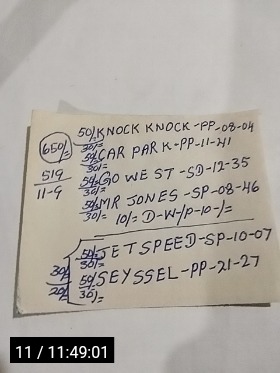 50/- KNOCK KNOCK-PP-08-04
650/- 30/-
50/- CAR PARK-PP-11-41
519 30/-
11-9 50/- GO WEST-SD-12-35
30/-
50/- MR JONES-SP-08-46
30/- 10/= D-W-/P-10-/=
50/- JETSPEED-SP-10-07
30/- 30/=
20/- 50/- SEYSSEL-PP-21-27
30/=
11 / 11:49:01